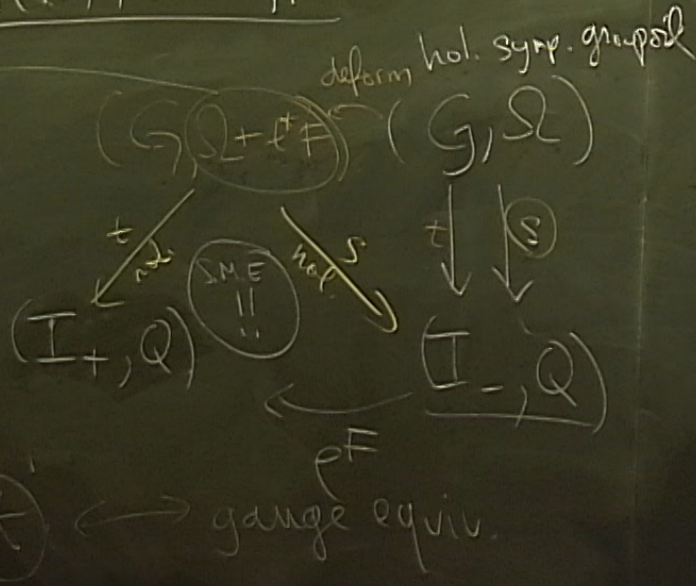 deform hol. symp. groupoid
(G, Ω + t*F) (G, Ω)
t hol. S.M.E hol. s t s
!!
(I₊, Q) (I₋, Q)
e^F
↔ gauge equiv.